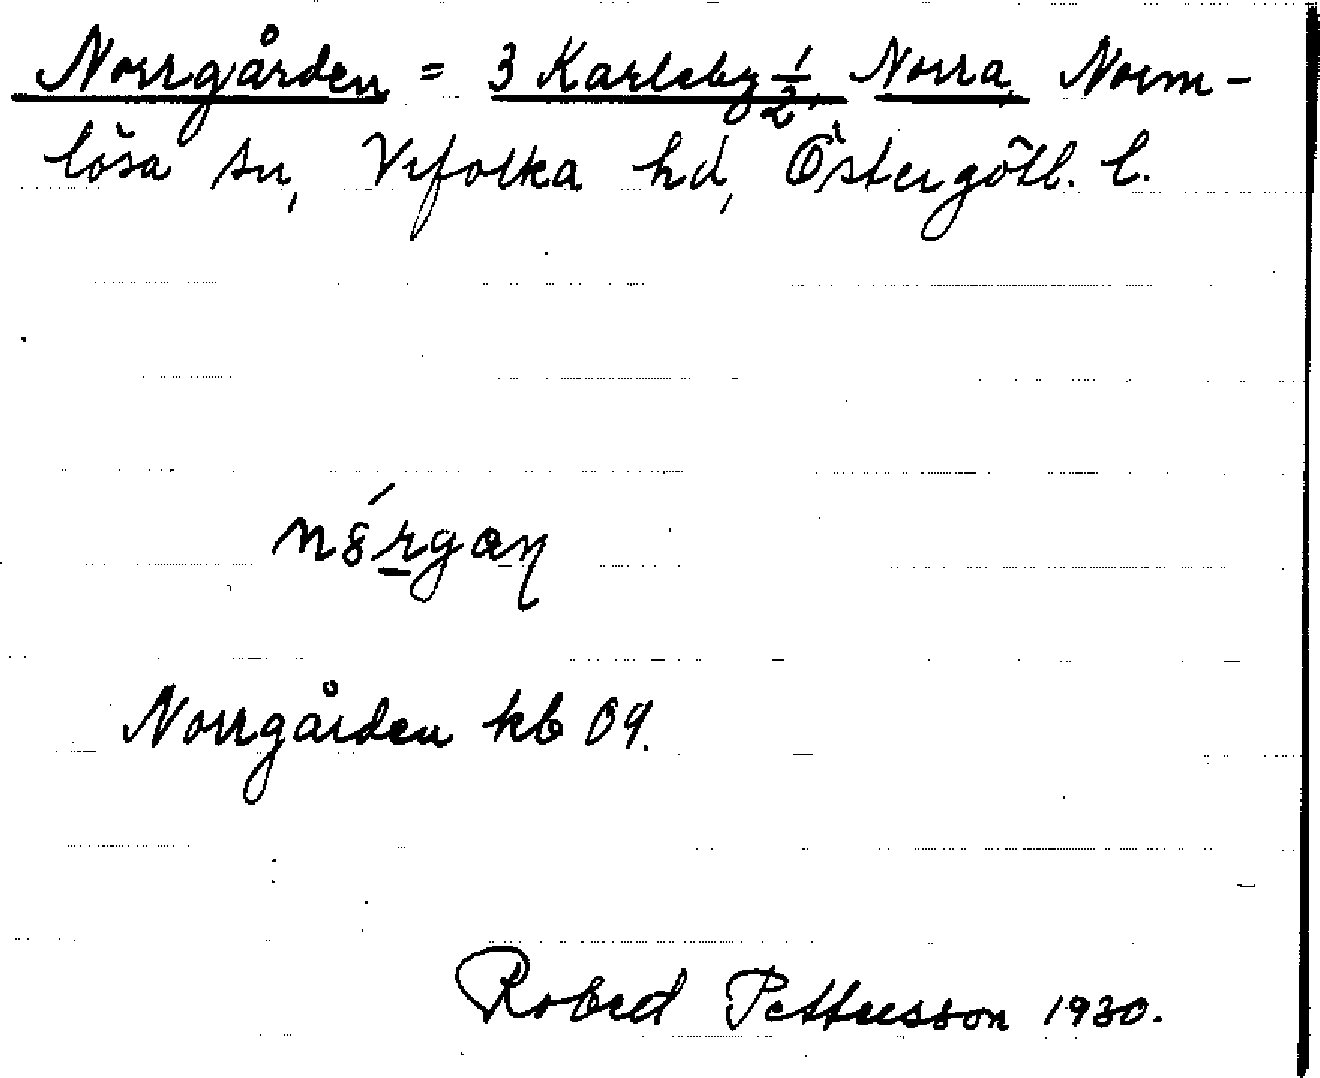 Norrgården = 3 Karleby 1/2, Norra, Norm-
lösa sn, Vifolka hd, Östergötl. l.
Norrgården kb 09.
Robert Pettersson 1930.